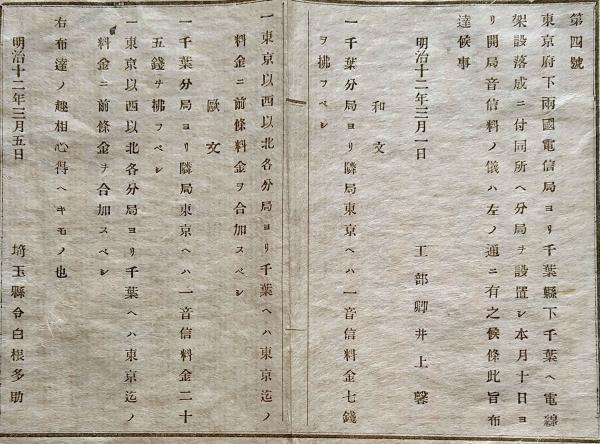 第四號
東京府下兩國電信局ヨリ千葉縣下千葉ヘ電線
架設落成ニ付同所ヘ分局ヲ設置シ本月十日ヨ
リ開局音信料ノ儀ハ左ノ通ニ有之候條此旨布
達候事
明治十二年三月一日　工部卿井上馨
和文
一千葉分局ヨリ隣局東京ヘハ一音信料金七錢
ヲ拂フベシ
一東京以西以北各分局ヨリ千葉ヘハ東京迄ノ
料金ニ前條料金ヲ合加スベシ
歐文
一千葉分局ヨリ隣局東京ヘハ一音信料金二十
五錢ヲ拂フベシ
一東京以西以北各分局ヨリ千葉ヘハ東京迄ノ
料金ニ前條金ヲ合加スベシ
右布達ノ趣相心得ヘキモノ也
明治十二年三月五日　埼玉縣令白根多助